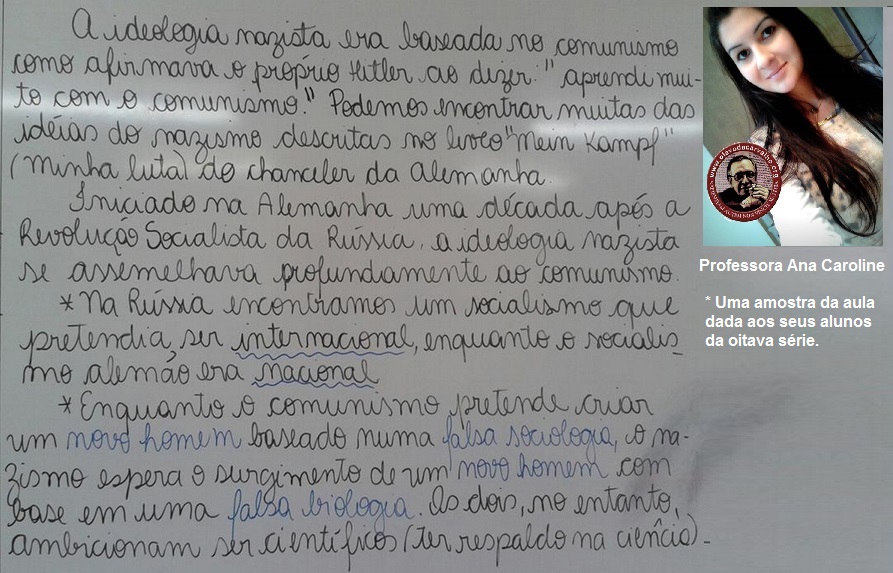 A ideologia nazista era baseada no comunismo
como afirmava o próprio Hitler ao dizer: "aprendi mui-
to com o comunismo." Podemos encontrar muitas das
idéias do nazismo descritas no livro "Mein Kampf"
(minha luta) do chanceler da Alemanha.
Iniciado na Alemanha uma década após a
Revolução Socialista da Rússia, a ideologia nazista
se assemelhava profundamente ao comunismo.
* Na Rússia encontramos um socialismo que
pretendia ser internacional, enquanto o socialis-
mo alemão era nacional
* Enquanto o comunismo pretende criar
um novo homem baseado numa falsa sociologia, o na-
zismo espera o surgimento de um novo homem com
base em uma falsa biologia. Os dois, no entanto,
ambicionam ser científicos (ter respaldo na ciência).
www.olavodecarvalho.org
Professora Ana Caroline
* Uma amostra da aula
dada aos seus alunos
da oitava série.